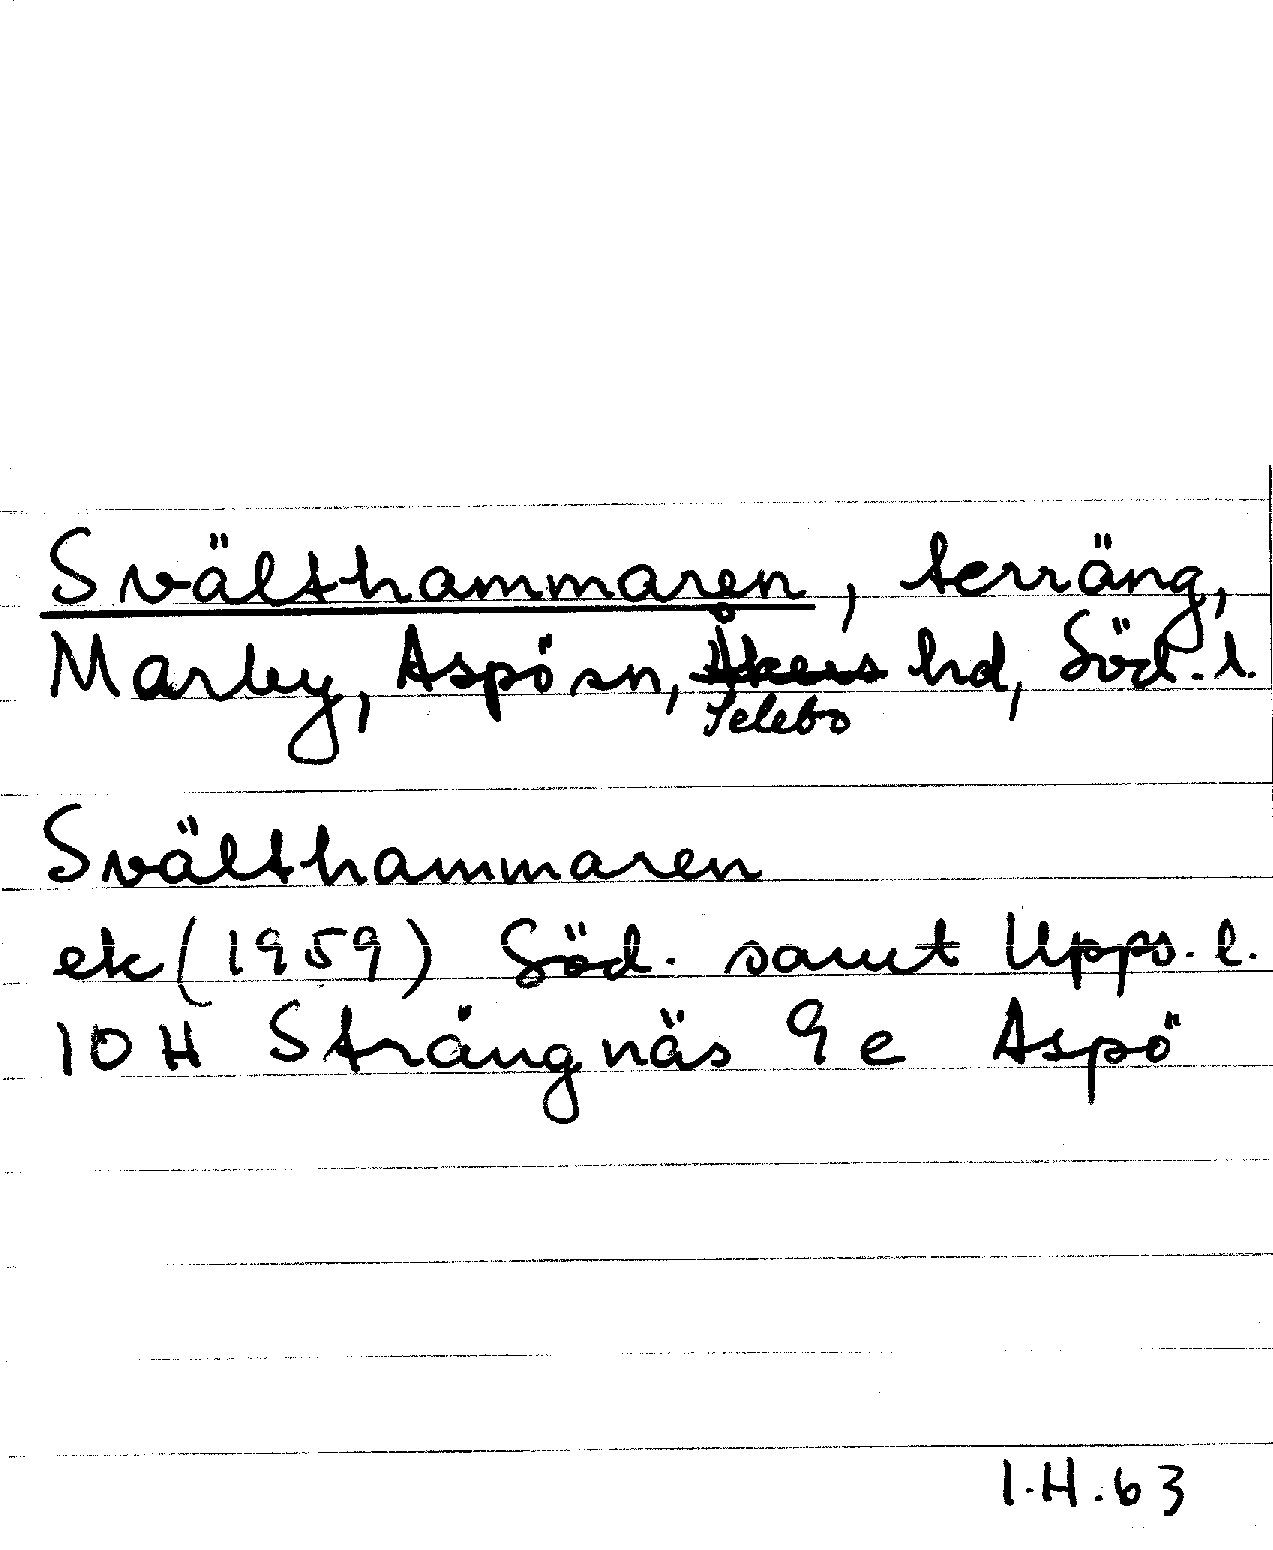 Svälthammaren, terräng,
Marby, Aspö sn, Åkers hd, Söd. l.
Selebo
Svälthammaren
ek (1959) Söd. samt Upps. l.
10 H Strängnäs 9 e Aspö
I.H. 63